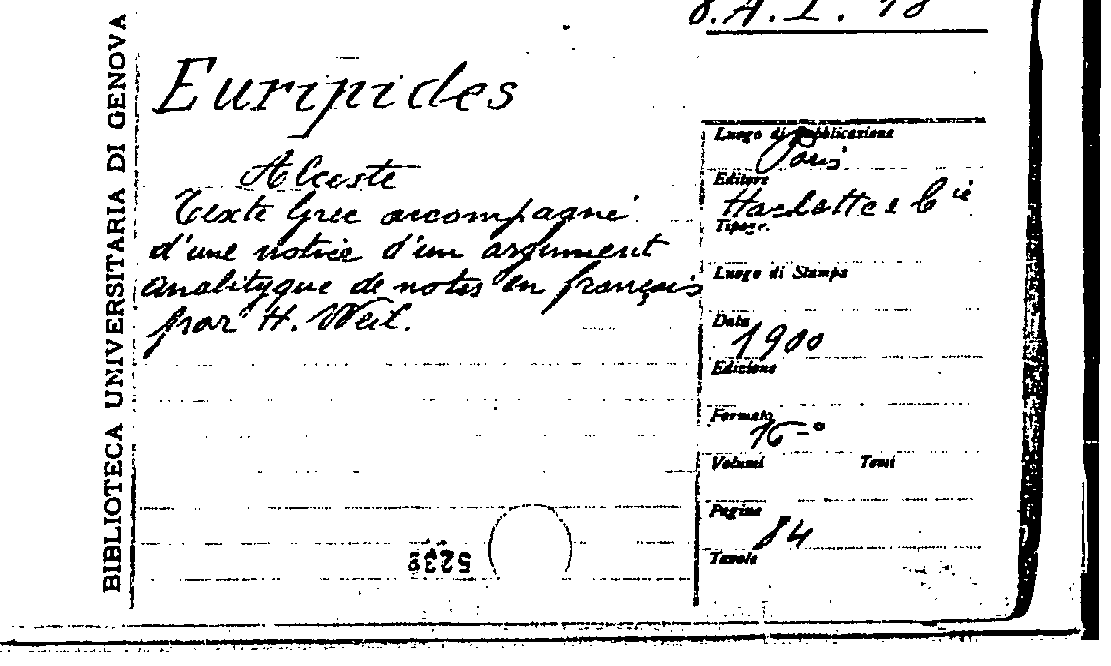 BIBLIOTECA UNIVERSITARIA DI GENOVA
8.A.I. 18
Euripides
Alceste
Texte Grec accompagné
d'une notice d'un argument
analityque de notes en français
par H. Weil.
Luogo di Pubblicazione
Paris
Editore
Hachette e C ie
Tipogr.
Luogo di Stampa
Data
1900
Edizione
Formato
16-°
Volumi Tomi
Pagine
84
Tavole